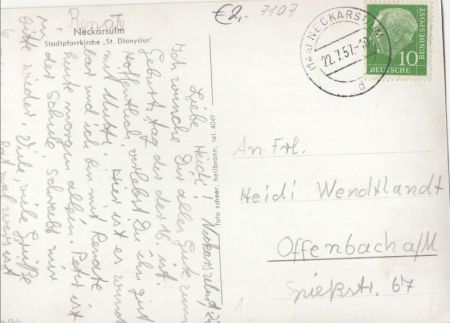 Renate
€2,- 7107
Neckarsulm
Stadtpfarrkirche „St. Dionysius"
NECKARSULM
22.7.57.
d
10
DEUTSCHE
BUNDESPOST
Liebe Heidi!
Ich wünsche Dir alles Gute zum
Geburtstag der der 16. ist.
Hoffentlich verlebst Du ihn gut
mit Mutti. Hier ist es
und ich bin mit Renate
heute morgen allein. Peter ist
in der Schule. Schreibt mir
bitte wieder. Viele viele Grüße
foto scheer, heilbronn, tel. 4069
An Frl.
Heidi Wendtlandt
Offenbach a/M
Spießstr. 67